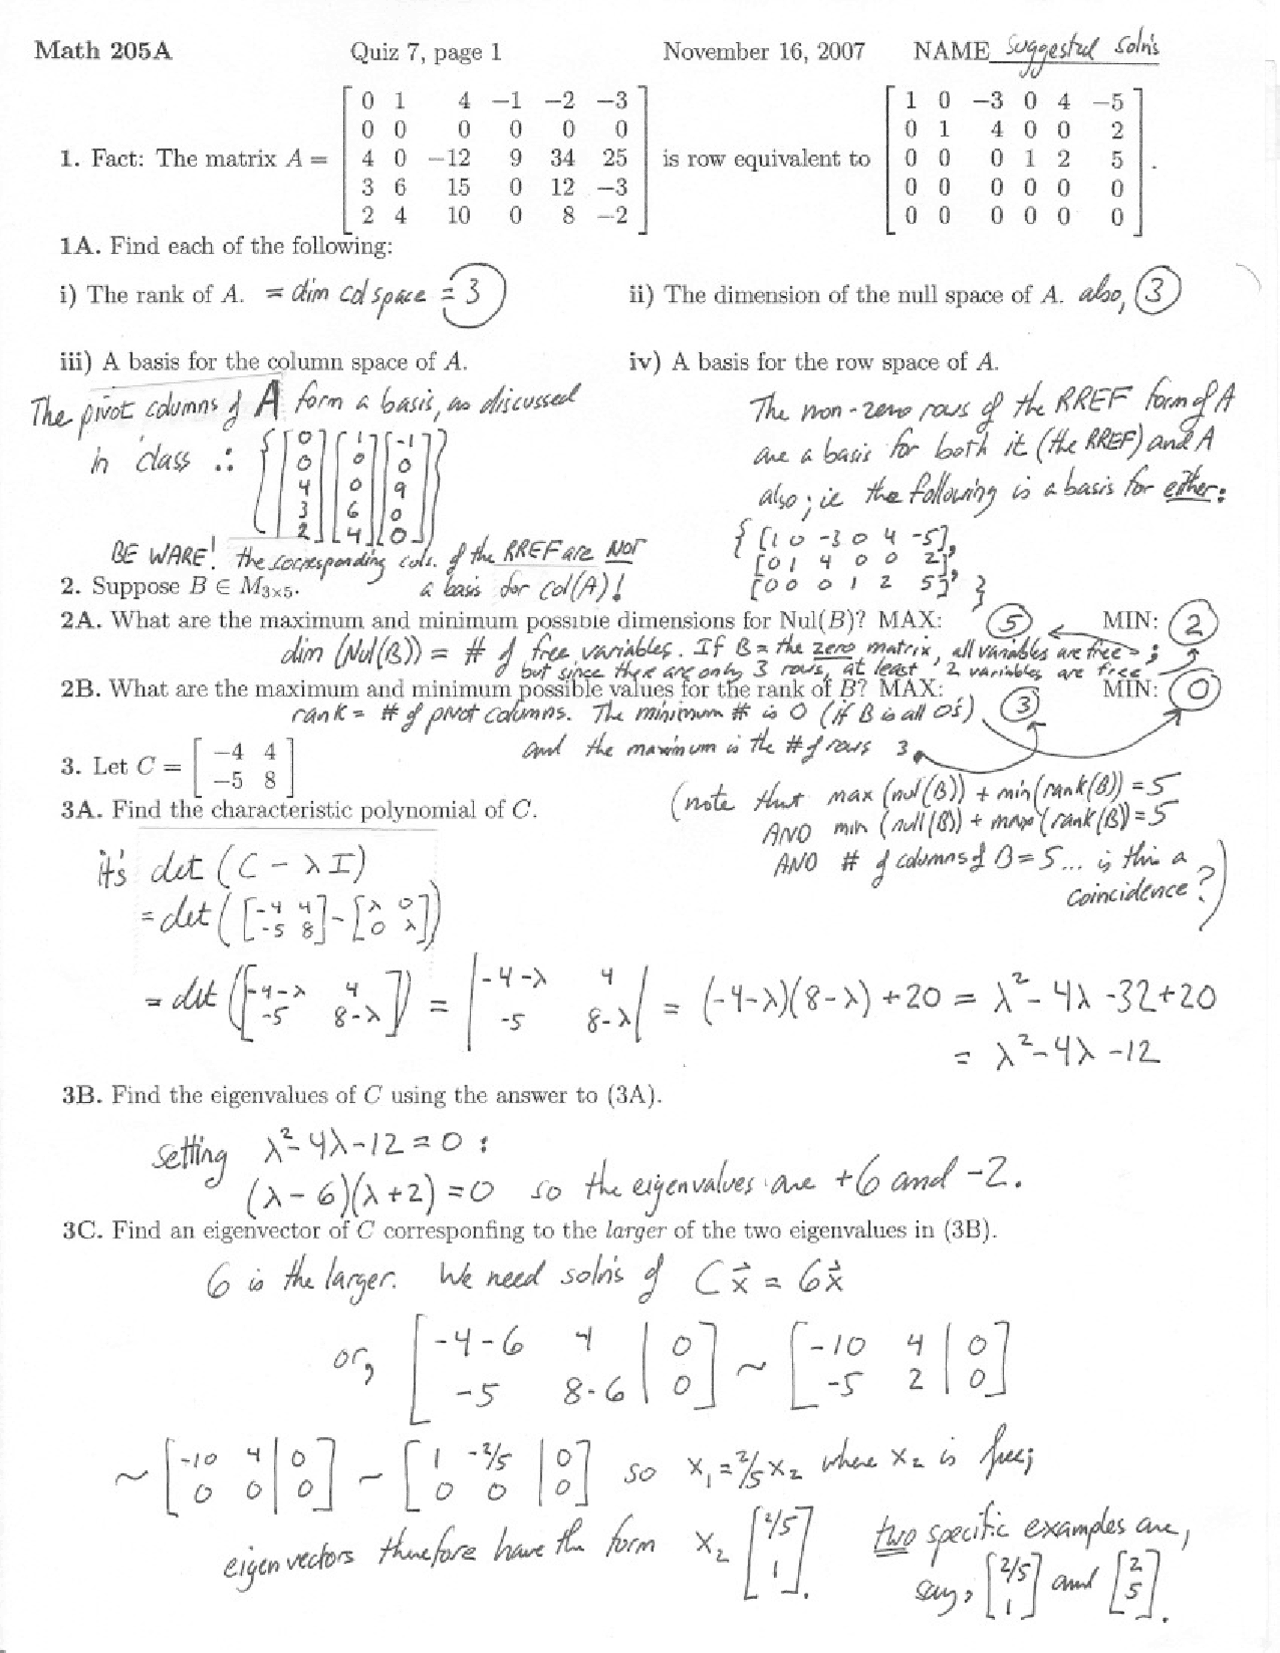 Math 205A Quiz 7, page 1 November 16, 2007 NAME Suggested Soln's
1. Fact: The matrix A = [ 0 1 4 −1 −2 −3 ; 0 0 0 0 0 0 ; 4 0 −12 9 34 25 ; 3 6 15 0 12 −3 ; 2 4 10 0 8 −2 ] is row equivalent to [ 1 0 −3 0 4 −5 ; 0 1 4 0 0 2 ; 0 0 0 1 2 5 ; 0 0 0 0 0 0 ; 0 0 0 0 0 0 ] .
1A. Find each of the following:
i) The rank of A. = dim col space = 3
ii) The dimension of the null space of A. also, 3
iii) A basis for the column space of A.
The pivot columns of A form a basis, as discussed
in class ∴ { [ 0 0 4 3 2 ] [ 1 0 0 6 4 ] [ -1 0 9 0 0 ] }
BE WARE! the corresponding cols. of the RREF are NOT
a basis for col(A)!
iv) A basis for the row space of A.
The non-zero rows of the RREF form of A
are a basis for both it (the RREF) and A
also; ie the following is a basis for either:
{ [1 0 -3 0 4 -5],
[0 1 4 0 0 2],
[0 0 0 1 2 5] }
2. Suppose B ∈ M3×5.
2A. What are the maximum and minimum possible dimensions for Nul(B)? MAX: 5 MIN: 2
dim (Nul(B)) = # of free variables. If B = the zero matrix, all variables are free;
but since there are only 3 rows, at least 2 variables are free
2B. What are the maximum and minimum possible values for the rank of B? MAX: 3 MIN: 0
rank = # of pivot columns. The minimum # is 0 (if B is all 0s)
and the maximum is the # of rows 3.
3. Let C = [ −4 4 ; −5 8 ]
3A. Find the characteristic polynomial of C.
(note that max (nul(B)) + min(rank(B)) = 5
AND min (null(B)) + max (rank(B)) = 5
AND # of columns of B = 5... is this a
coincidence?)
it's det (C - λI)
= det ( [ -4 4 ; -5 8 ] - [ λ 0 ; 0 λ ] )
= det ( [ -4-λ 4 ; -5 8-λ ] ) = | -4-λ 4 ; -5 8-λ | = (-4-λ)(8-λ) + 20 = λ² - 4λ - 32 + 20
= λ² - 4λ - 12
3B. Find the eigenvalues of C using the answer to (3A).
setting λ² - 4λ - 12 = 0 :
(λ - 6)(λ + 2) = 0 so the eigenvalues are +6 and -2.
3C. Find an eigenvector of C corresponfing to the larger of the two eigenvalues in (3B).
6 is the larger. We need soln's of Cx⃗ = 6x⃗
or, [ -4-6 4 | 0 ; -5 8-6 | 0 ] ~ [ -10 4 | 0 ; -5 2 | 0 ]
~ [ -10 4 | 0 ; 0 0 | 0 ] ~ [ 1 -2/5 | 0 ; 0 0 | 0 ] so x₁ = 2/5 x₂ where x₂ is free;
eigenvectors therefore have the form x₂ [ 2/5 ; 1 ]. two specific examples are,
say, [ 2/5 ; 1 ] and [ 2 ; 5 ].